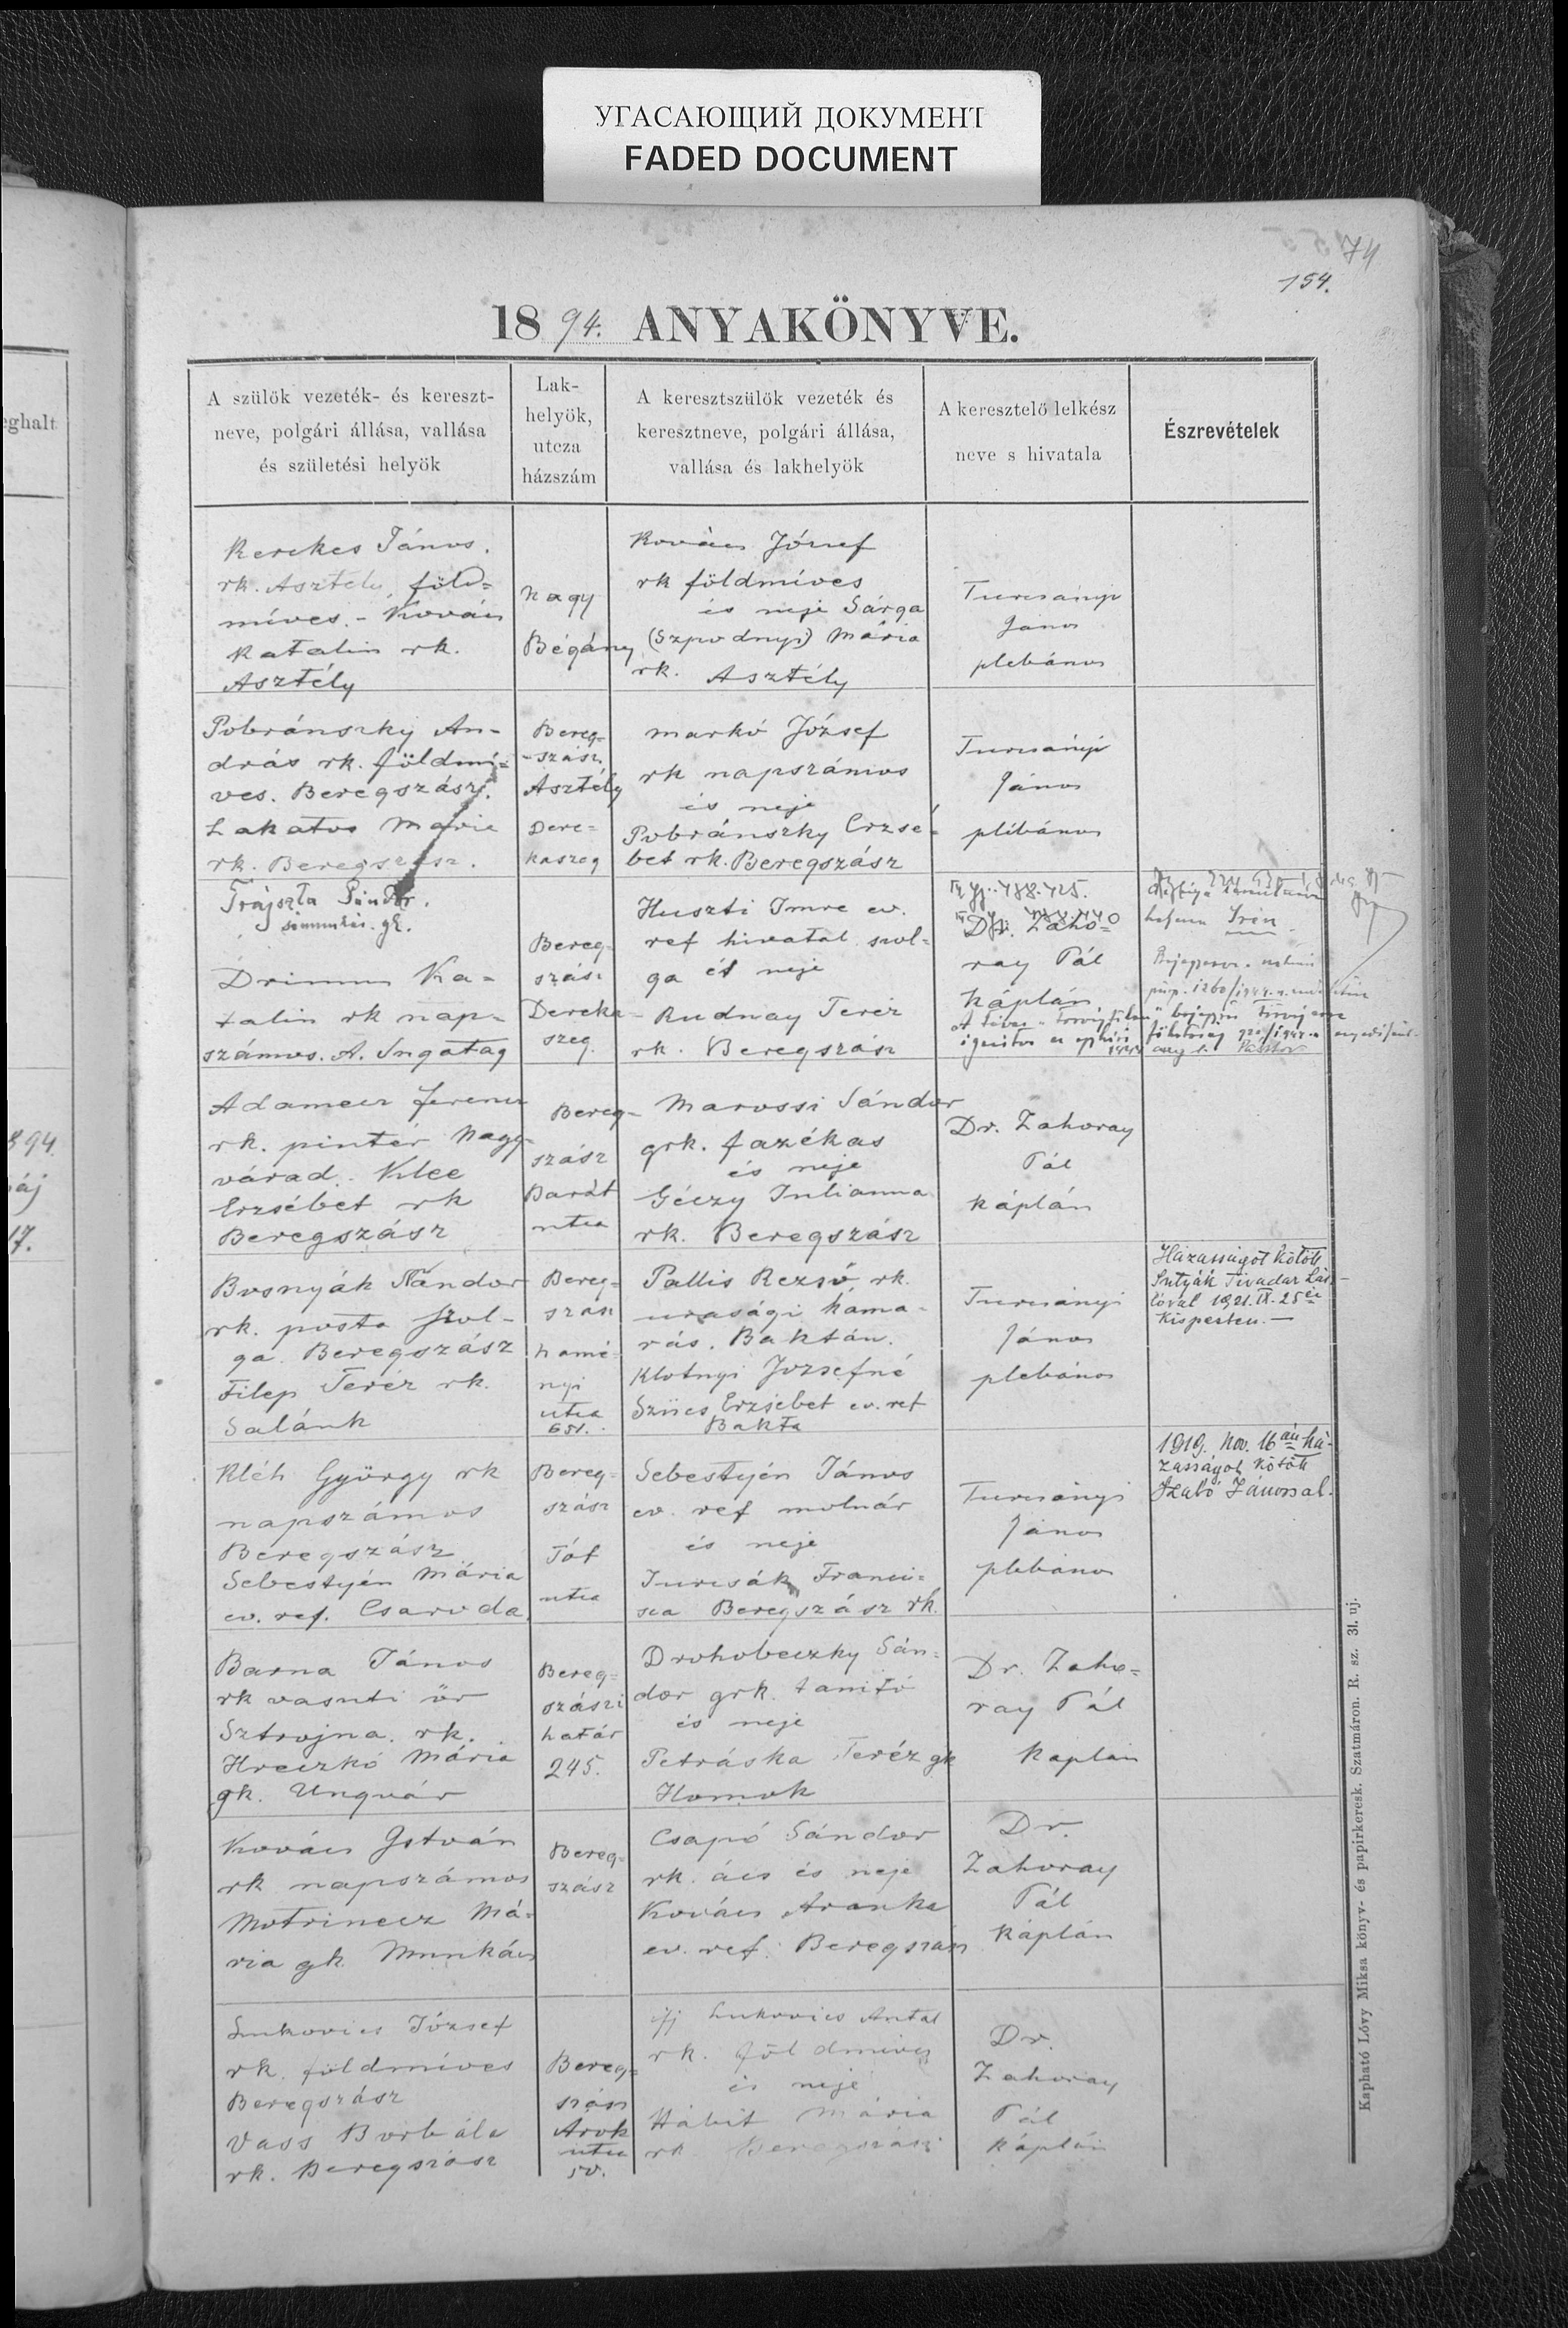 УГАСАЮЩИЙ ДОКУМЕНТ
FADED DOCUMENT
74
154.
1894. ANYAKÖNYVE.
eghalt
A szülök vezeték- és kereszt-
neve, polgári állása, vallása
és születési helyök
Lak-
helyök,
utcza
házszám
A keresztszülök vezeték és
keresztneve, polgári állása,
vallása és lakhelyök
A keresztelő lelkész
neve s hivatala
Észrevételek
Kerekes János.
rk. Asztély, föld=
míves. - Kovács
Katalin rk.
Asztély
Nagy
Bégány
Kovács József
rk földmíves
és neje Sárga
(Szpodnyi) Mária
rk. Asztély
Turcsányi
János
plebános
Pobránszky An-
drás rk. földmí=
ves. Beregszász.
Lakatos Mária
rk. Beregszász.
Bereg=
-szász
Asztély
Dere=
kaszeg
Markó József
rk napszámos
és neje
Pobránszky Erzsé-
bet rk. Beregszász
Turcsányi
János
plébános
Trájszta Sándor.
gk.
Drimus Ka=
talin rk nap=
számos. A. Ingatag
Bereg-
szász
Dereka-
szeg
Huszti Imre ev.
ref hivatal szol=
ga és neje
Rudnay Teréz
rk. Beregszász
Dr. Zaho=
ray Pál
Káplán
Irén
Adamecz Ferencz
rk. pintér Nagy-
várad. Klee
Erzsébet rk
Beregszász
Bereg-
szász
Barát
utca
Marossi Sándor
grk. fazékas
és neje
Géczy Julianna
rk. Beregszász
Dr. Zahoray
Pál
káplán
Bosnyák Nándor
rk. posta szol-
ga. Beregszász
Filep Teréz rk.
Salánk
Bereg=
szász
namé-
nyi
utca
651.
Pallis Rezső rk.
urasági káma-
rás. Baktán.
Klotnyi Jozsefné
Szücs Erzsébet ev. ref
Bakta
Turcsányi
János
plebános
Házasságot kötött
Sutyák Tivadar Lász-
lóval 1921. IX. 25 én
Kispesten. -
894
áj
17.
Kléh György rk
napszámos
Beregszász
Sebestyén Mária
ev. ref. Csaroda.
Bereg=
szász
Tót
utca
Sebestyén János
ev. ref molnár
és neje
Jurcsák Franci=
sca Beregszász rk.
Turcsányi
János
plebános
1919. Nov. 16 án há-
zasságot kötött
Szabó Jánossal.
Barna János
rk vasuti őr
Sztrojna. rk.
Hreczkó Mária
gk. Ungvár
Bereg=
szászi
határ
245.
Drohobeczky Sán=
dor grk. tanitó
és neje
Petráska Teréz gk
Homok
Dr. Zaho=
ray Pál
Kaplán
Kovács István
rk napszámos
Motrinecz Má-
ria gk. Munkács
Bereg=
szász
Csapó Sándor
rk. ács és neje
Kovács Aranka
ev. ref. Beregszász
Dr.
Zahoray
Pál
Káplán
Lukovics József
rk. földmíves
Beregszász
Vass Borbála
rk. Beregszász
Bereg=
szász
Árok
utca
50.
ifj Lukovics Antal
rk. földmíves
és neje
Hábit Mária
rk Beregszász
Dr.
Zahoray
Pál
káplán
Kapható Lővy Miksa könyv- és papirkeresk. Szatmáron. R. sz. 31. uj.